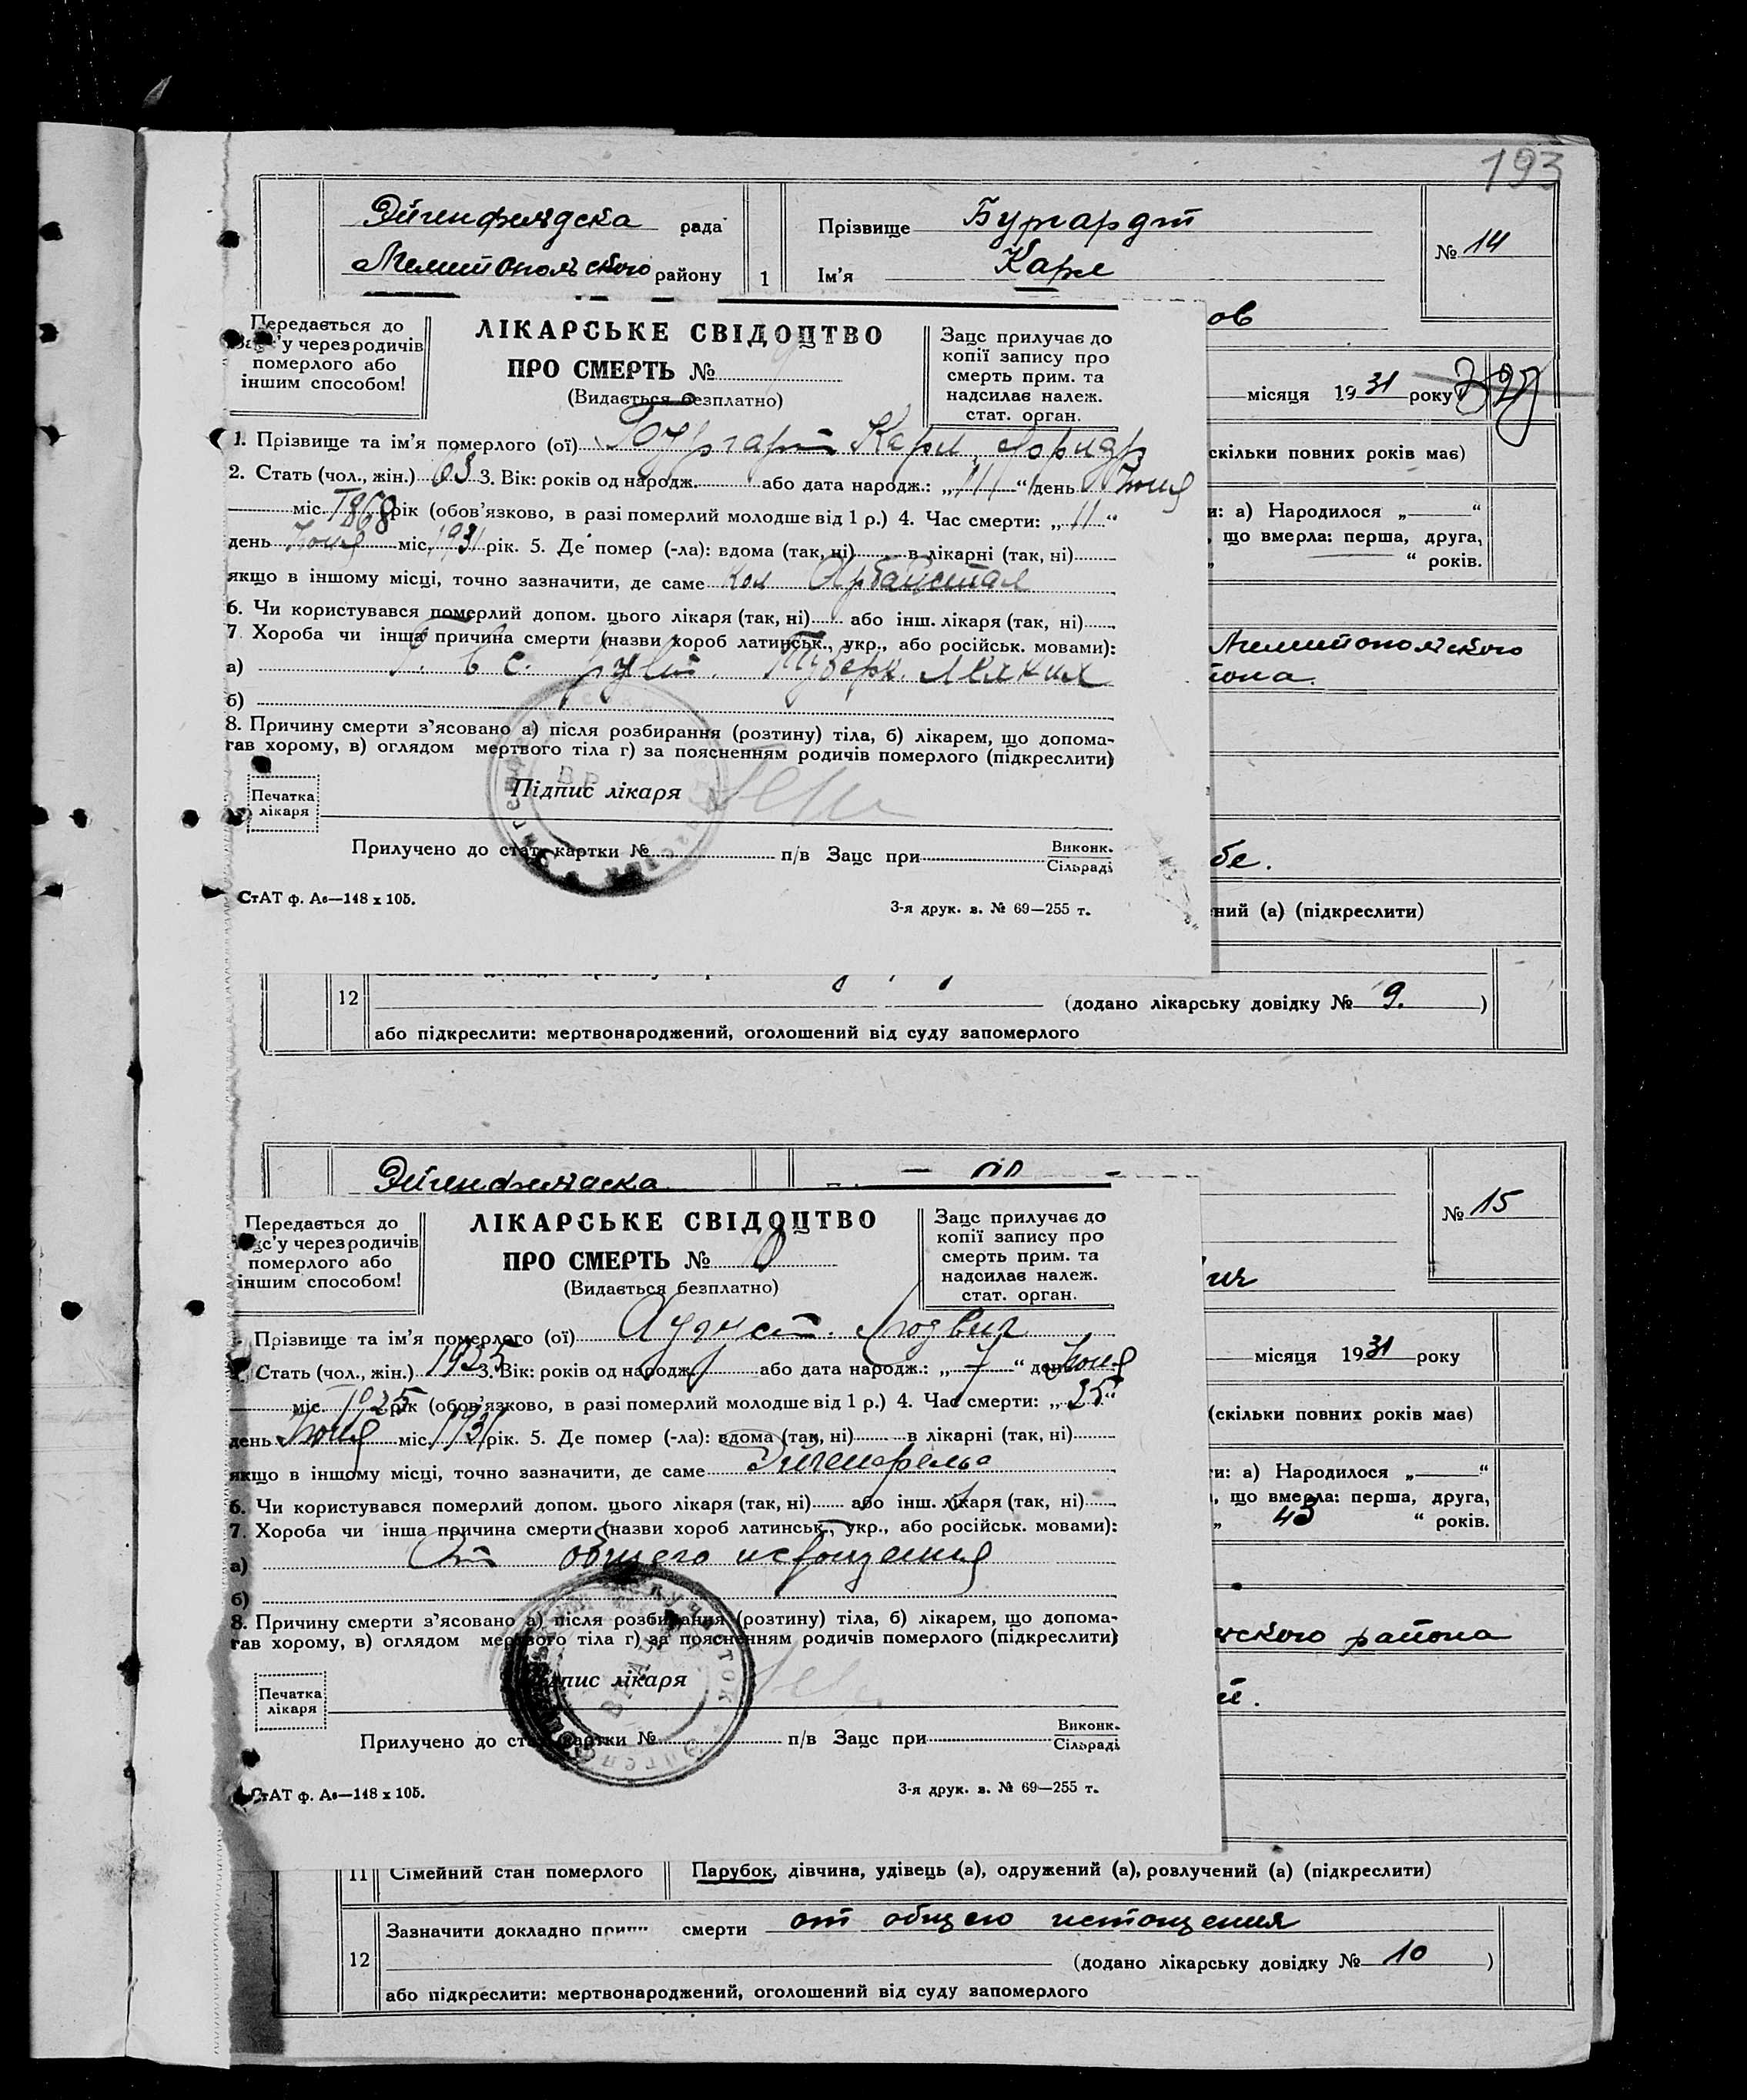 193
Эйгенфельдска рада
Прізвище Бургардт
№ 14
Мелитопольского району
1
Ім'я Карл
ов
Передається до
Загс'у через родичів
померлого або
іншим способом!
ЛІКАРСЬКЕ СВІДОЦТВО
ПРО СМЕРТЬ №
(Видається безплатно)
Загс прилучає до
копії запису про
смерть прим. та
надсилає належ.
стат. орган.
місяця 1931 року
1. Прізвище та ім'я померлого (ої) Бургарт Карл Фридр
скільки повних років має)
2. Стать (чол., жін.) 63 3. Вік: років од народж. або дата народж.: „11“ день Июня
міс. 1868 рік (обов'язково, в разі померлий молодше від 1 р.) 4. Час смерти: „11“
и: а) Народилося „ “
день Июня міс. 1931 рік. 5. Де помер (-ла): вдома (так, ні) в лікарні (так, ні)
, що вмерла: перша, друга,
“ років.
якщо в іншому місці, точно зазначити, де саме кол Арбайсталь
6. Чи користувався померлий допом. цього лікаря (так, ні) або інш. лікаря (так, ні)
7. Хороба чи інша причина смерти (назви хороб латинськ., укр., або російськ. мовами):
Мелитопольского
а) Туберк. легких
иона.
б)
8. Причину смерти з'ясовано а) після розбирання (розтину) тіла, б) лікарем, що допома-
гав хорому, в) оглядом мертвого тіла г) за поясненням родичів померлого (підкреслити)
Печатка
лікаря
Підпис лікаря
Прилучено до стат. картки № п/в Загс при Виконк.
Сільраді
бе.
СтАТ ф. А6—148 х 105.
3-я друк. з. № 69—255 т.
ний (а) (підкреслити)
12
(додано лікарську довідку № 9.)
або підкреслити: мертвонароджений, оголошений від суду запомерлого
Эйгенфельдска
№ 15
Передається до
Загс'у через родичів
померлого або
іншим способом!
ЛІКАРСЬКЕ СВІДОЦТВО
ПРО СМЕРТЬ № 10
(Видається безплатно)
Загс прилучає до
копії запису про
смерть прим. та
надсилає належ.
стат. орган.
1. Прізвище та ім'я померлого (ої) Август Людвиг
місяця 1931 року
2. Стать (чол., жін.) 1925 3. Вік: років од народж. або дата народж.: „7“ день Июня
міс. 1925 рік (обов'язково, в разі померлий молодше від 1 р.) 4. Час смерти: „25“
(скільки повних років має)
день Июня міс. 1931 рік. 5. Де помер (-ла): вдома (так, ні) в лікарні (так, ні)
якщо в іншому місці, точно зазначити, де саме Эйгенфельд
ти: а) Народилося „ “
, що вмерла: перша, друга,
6. Чи користувався померлий допом. цього лікаря (так, ні) або інш. лікаря (так, ні)
„ 43 “ років.
7. Хороба чи інша причина смерти (назви хороб латинськ., укр., або російськ. мовами):
а) От общего истощения
б)
8. Причину смерти з'ясовано а) після розбирання (розтину) тіла, б) лікарем, що допома-
гав хорому, в) оглядом мертвого тіла г) за поясненням родичів померлого (підкреслити)
ского района
Печатка
лікаря
Підпис лікаря
Прилучено до стат. картки № п/в Загс при Виконк.
Сільраді
СтАТ ф. А6—148 х 105.
3-я друк. з. № 69—255 т.
11 Сімейний стан померлого Парубок, дівчина, удівець (а), одружений (а), розлучений (а) (підкреслити)
12 Зазначити докладно причи смерти от общего истощения
(додано лікарську довідку № 10)
або підкреслити: мертвонароджений, оголошений від суду запомерлого